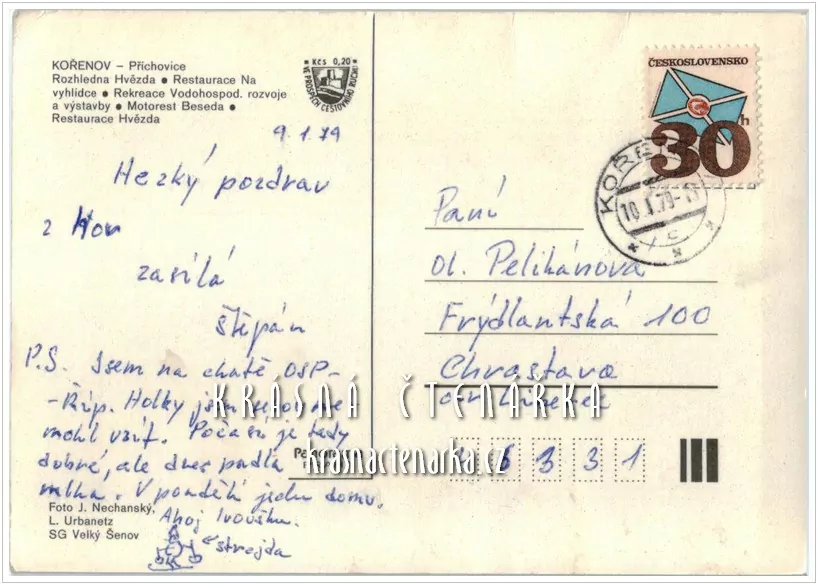 KOŘENOV – Příchovice
Rozhledna Hvězda ● Restaurace Na
vyhlídce ● Rekreace Vodohospod. rozvoje
a výstavby ● Motorest Beseda ●
Restaurace Hvězda
Kčs 0,20
VE PROSPĚCH CESTOVNÍHO RUCHU
9.1.79
Hezký pozdrav
z Hor
zasílá
Štěpán
P.S. Jsem na chatě OSP-
-Říp. Holky jsem
mohl vzít. Počasí je tady
dobré, ale dnes padla
mlha. V pondělí jedu domů.
Ahoj Ivoušku.
strejda
Foto J. Nechanský,
L. Urbanetz
SG Velký Šenov
ČESKOSLOVENSKO
30h
KOŘEN
10.1.79
Paní
ol. Pelikánová
Frýdlantská 100
Chrastava
KRÁSNÁ ČTENÁŘKA
krasnactenarka.cz
3 3 1